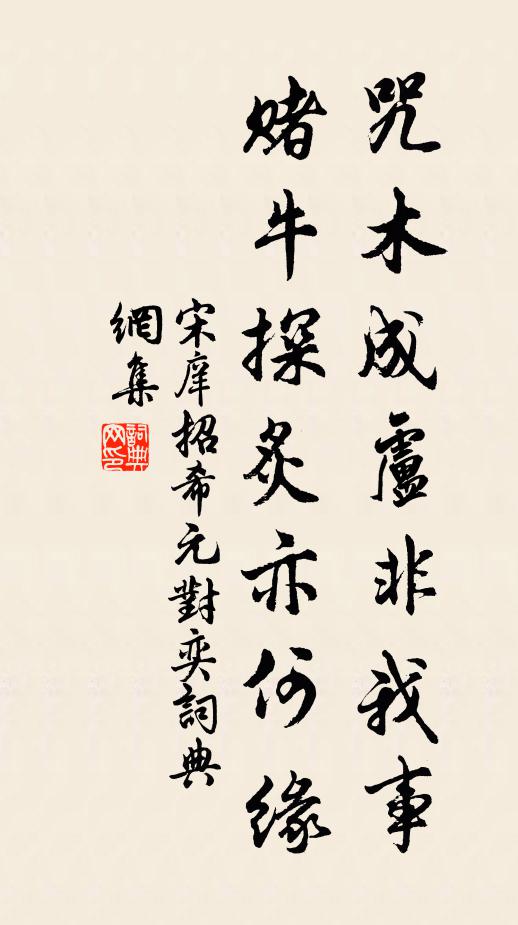 咒木成盧非我事
賭牛探炙亦何緣
宋庠招希元對奕詞典
網集
詞典
网印